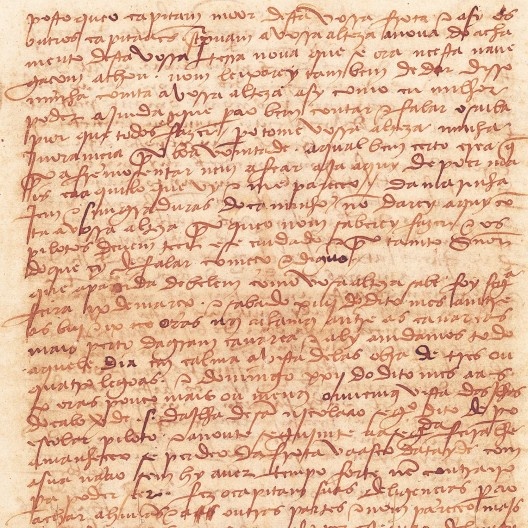 posto que o capitam moor desta vossa frota e asy os
outros capitaães screpuam a vossa alteza a noua do acha
mento desta vossa terra noua que se ora neesta naue
gaçom achou. nom leixarey tambem de dar disso
minha comta a vossa alteza asy como eu milhor
poder ajmda que pera o bem contar e falar o saiba
pior que todos fazer / pero tome vossa alteza minha
jnoramçia por boa vomtade. aqual bem çerto crea q̃
por afremosentar nem afear aja aquy de poer ma
is ca aquilo que vy e me pareçeo / da marinha
jem e simgraduras do caminho nõ darey aquy cõ
ta a vossa alteza porque o nom saberey fazer e os
pilotos deuem teer ese cuidado e por tanto Snõr
do que ey de falar começo e diguo
que a partida de belem como vosa alteza sabe foy segª
feira ix de março. e sabado xiiij do dito mes amtre
as biij e ix oras nos achamos amtre as canareas
mais perto da gram canarea e aly amdamos todo
aquele dia em calma a vista delas obra de tres ou
quatro legoas. e domingo xxij do dito mes aas
x oras pouco mais ou menos ouuemos vista das jlhas
do cabo verde .s. da jlha de sã njcolaao segº dito de pº
escolar piloto. e a noute segujmte aa segda feira lhe
amanheceo se perdeo da frota vaasco datayde com
a sua naao sem hy auer tempo forte nẽ contrairo
pera poder seer. fez o capitam suas deligençias pera o
achar a hũuas e a outras partes e nom pareçeo majs